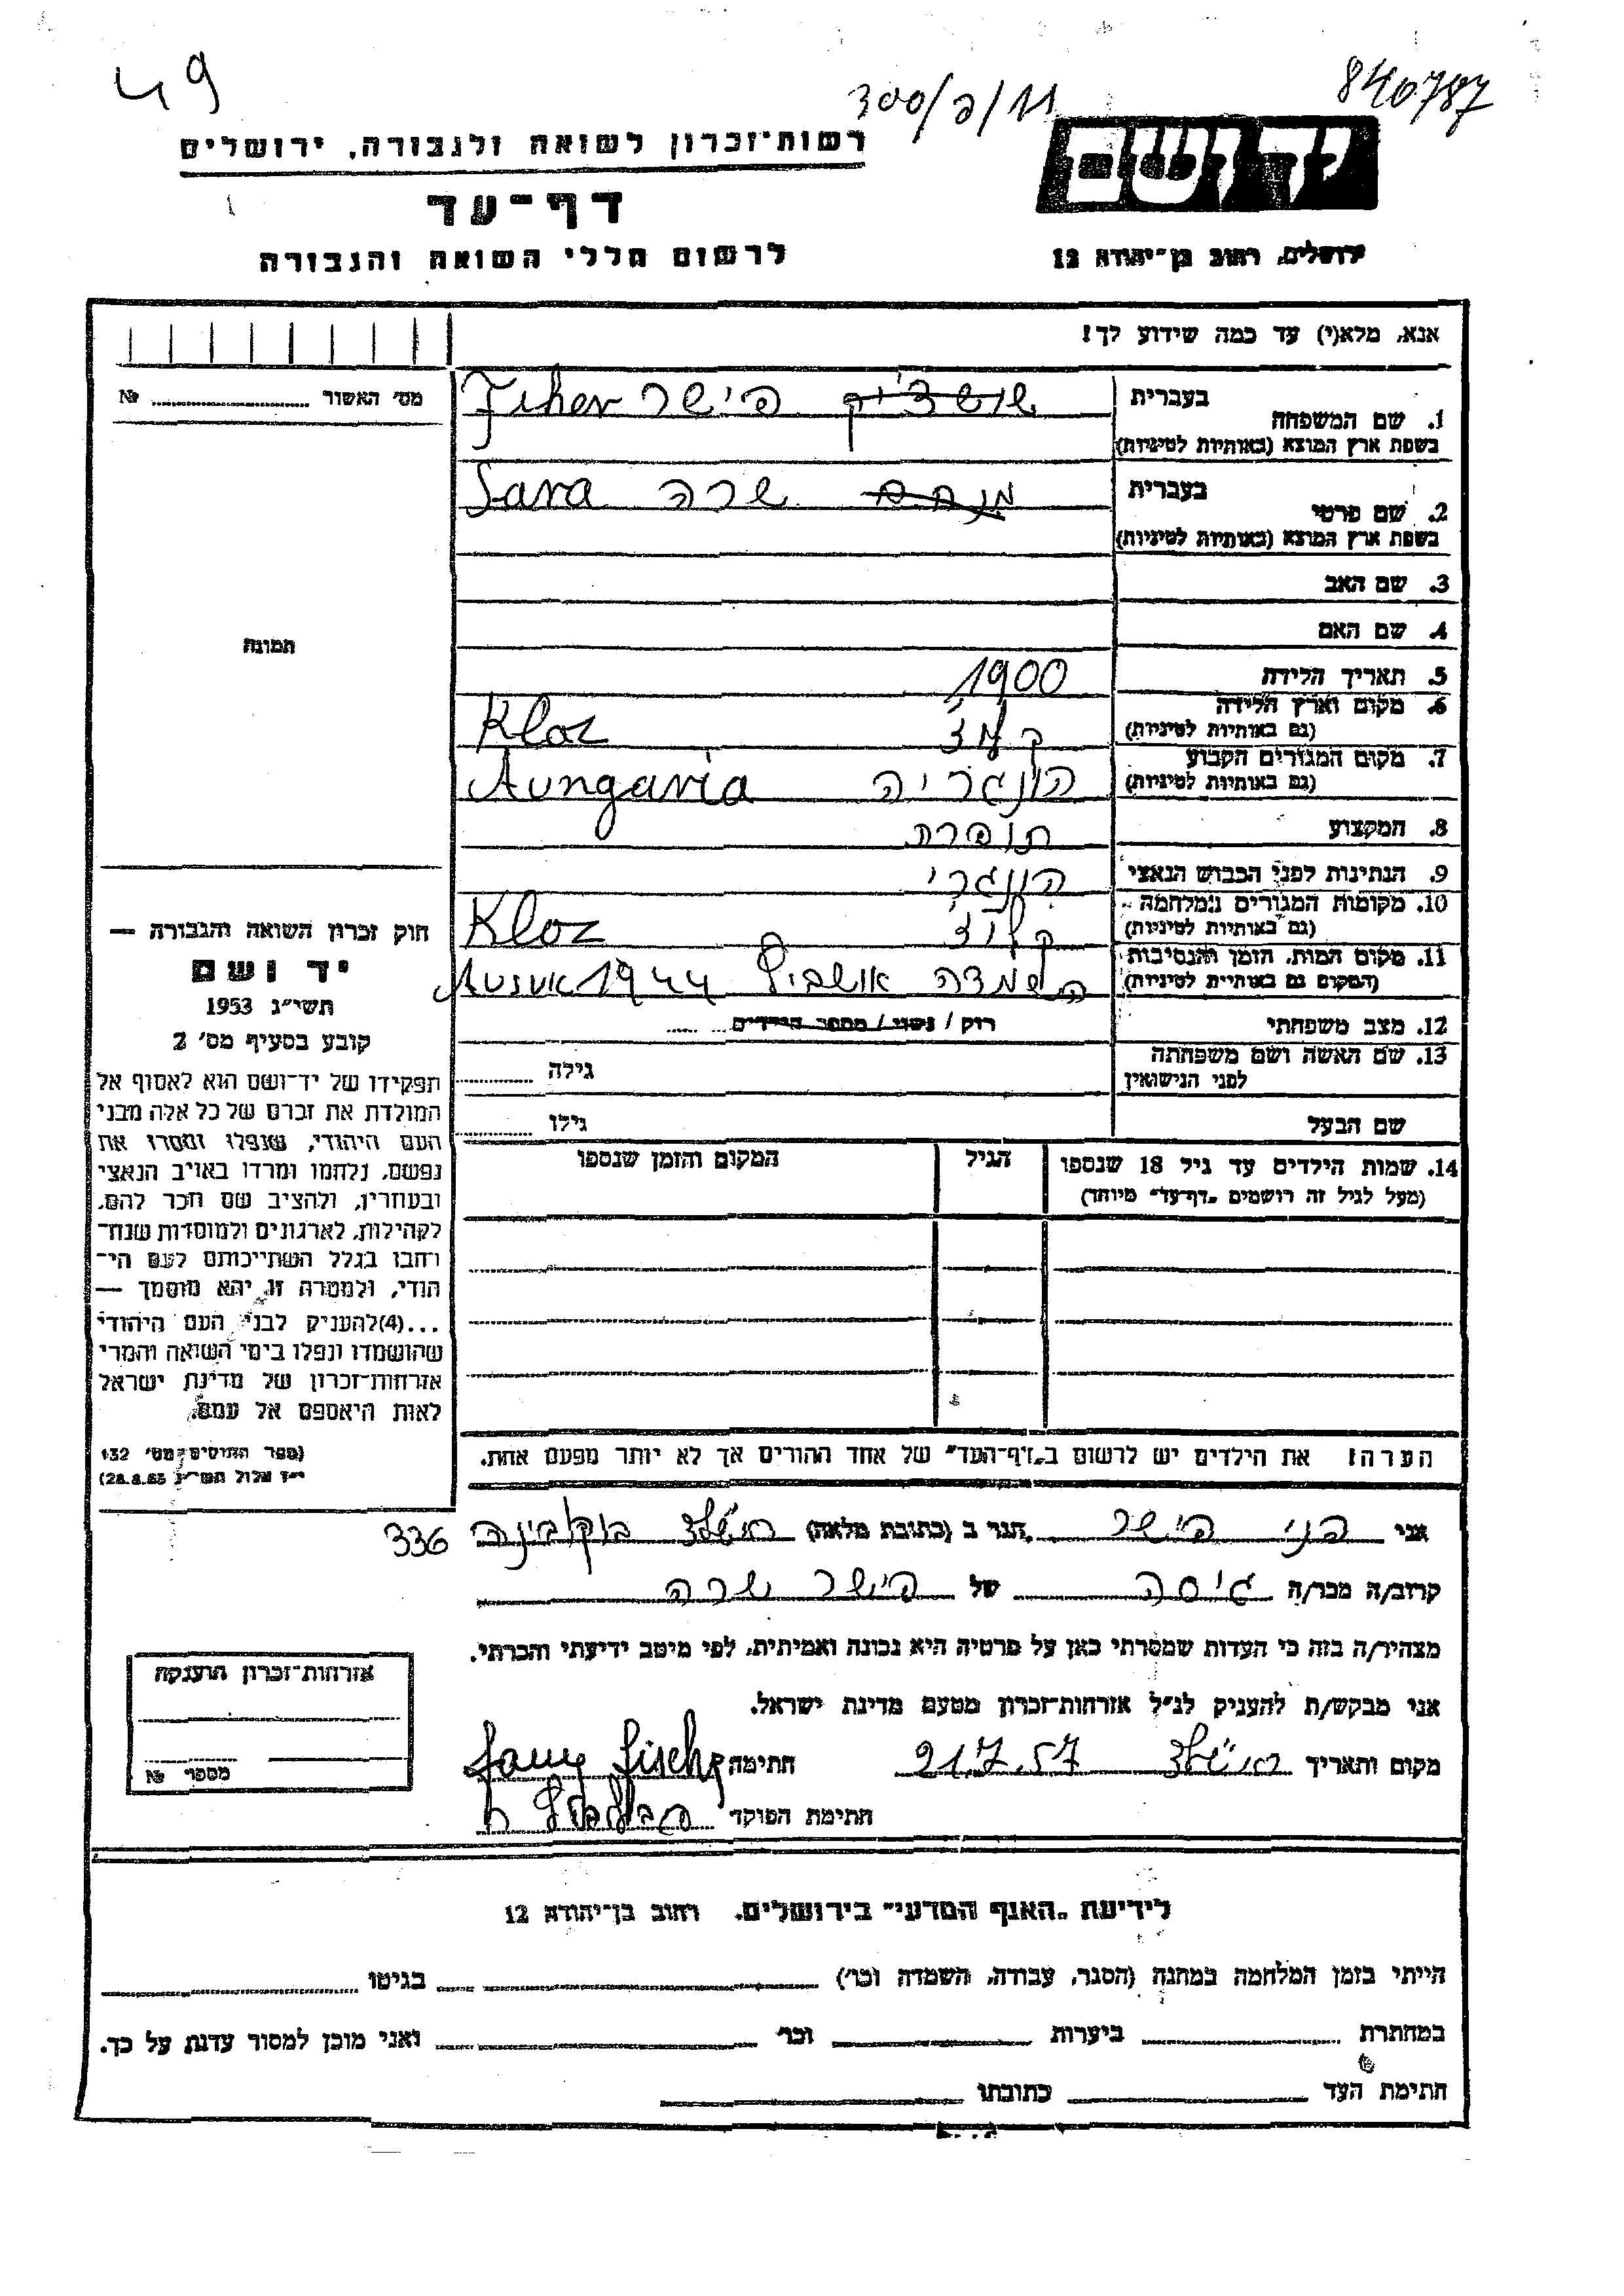 49
300/פ/11
840787
רשות־זכרון לשואה ולגבורה, ירושלים
יד ושם
דף־עד
לרשום חללי השואה והגבורה
ירושלים, רחוב בן־יהודה 12
אנא, מלא(י) עד כמה שידוע לך!
מס' האשור № 
1. שם המשפחה בעברית
בשפת ארץ המוצא (באותיות לטיניות)
פישר Fiher
2. שם פרטי בעברית
בשפת ארץ המוצא (באותיות לטיניות)
מנחם שרה Sara
3. שם האב
4. שם האם
תמונה
5. תאריך הלידה 1900
6. מקום וארץ הלידה
(גם באותיות לטיניות)
קלוז' Kloz
7. מקום המגורים הקבוע
(גם באותיות לטיניות)
הונגריה Aungaria
8. המקצוע תופרת
9. הנתינות לפני הכבוש הנאצי הונגרי
10. מקומות המגורים במלחמה
(גם באותיות לטיניות)
קלוז' Kloz
11. מקום המות, הזמן והנסיבות
(המקום גם באותיות לטיניות)
השמדה אושביץ 1944
12. מצב משפחתי רוק / נשוי / מספר הילדים
13. שם האשה ושם משפחתה
לפני הנישואין
גילה
שם הבעל גילו
14. שמות הילדים עד גיל 18 שנספו
(מעל לגיל זה רושמים „דף־עד" מיוחד)
הגיל
המקום והזמן שנספו
חוק זכרון השואה והגבורה —
יד ושם
תשי״ג 1953
קובע בסעיף מס' 2
תפקידו של יד־ושם הוא לאסוף אל
המולדת את זכרם של כל אלה מבני
העם היהודי, שנפלו ומסרו את
נפשם, נלחמו ומרדו באויב הנאצי
ובעוזריו, ולהציב שם וזכר להם,
לקהילות, לארגונים ולמוסדות שנח־
רחבו בגלל השתייכותם לעם הי־
הודי, ולמטרה זו יהא מוסמך —
...(4)להעניק לבני העם היהודי
שהושמדו ונפלו בימי השואה והמרי
אזרחות־זכרון של מדינת ישראל
לאות היאספם אל עמם.
(ספר החוקים מס' 132
י״ז אלול תשי״ג 28.8.53)
הערה! את הילדים יש לרשום ב„דף־העד" של אחד ההורים אך לא יותר מפעם אחת.
אני פני פישר הגר ב (כתובת מלאה)
336
קרוב/ה מכר/ה גיסה של פישר שרה
מצהיר/ה בזה כי העדות שמסרתי כאן על פרטיה היא נכונה ואמיתית, לפי מיטב ידיעתי והכרתי.
אני מבקש/ת להעניק לנ״ל אזרחות־זכרון מטעם מדינת ישראל.
מקום ותאריך 21.7.57 חתימה
חתימת הפוקד
אזרחות־זכרון הוענקה
מספר №
לידיעת „האגף המדעי" בירושלים, רחוב בן־יהודה 12
הייתי בזמן המלחמה במחנה (הסגר, עבודה, השמדה וכו') בגיטו
במחתרת ביערות וכו' ואני מוכן למסור עדות על כך.
חתימת העד כתובתו